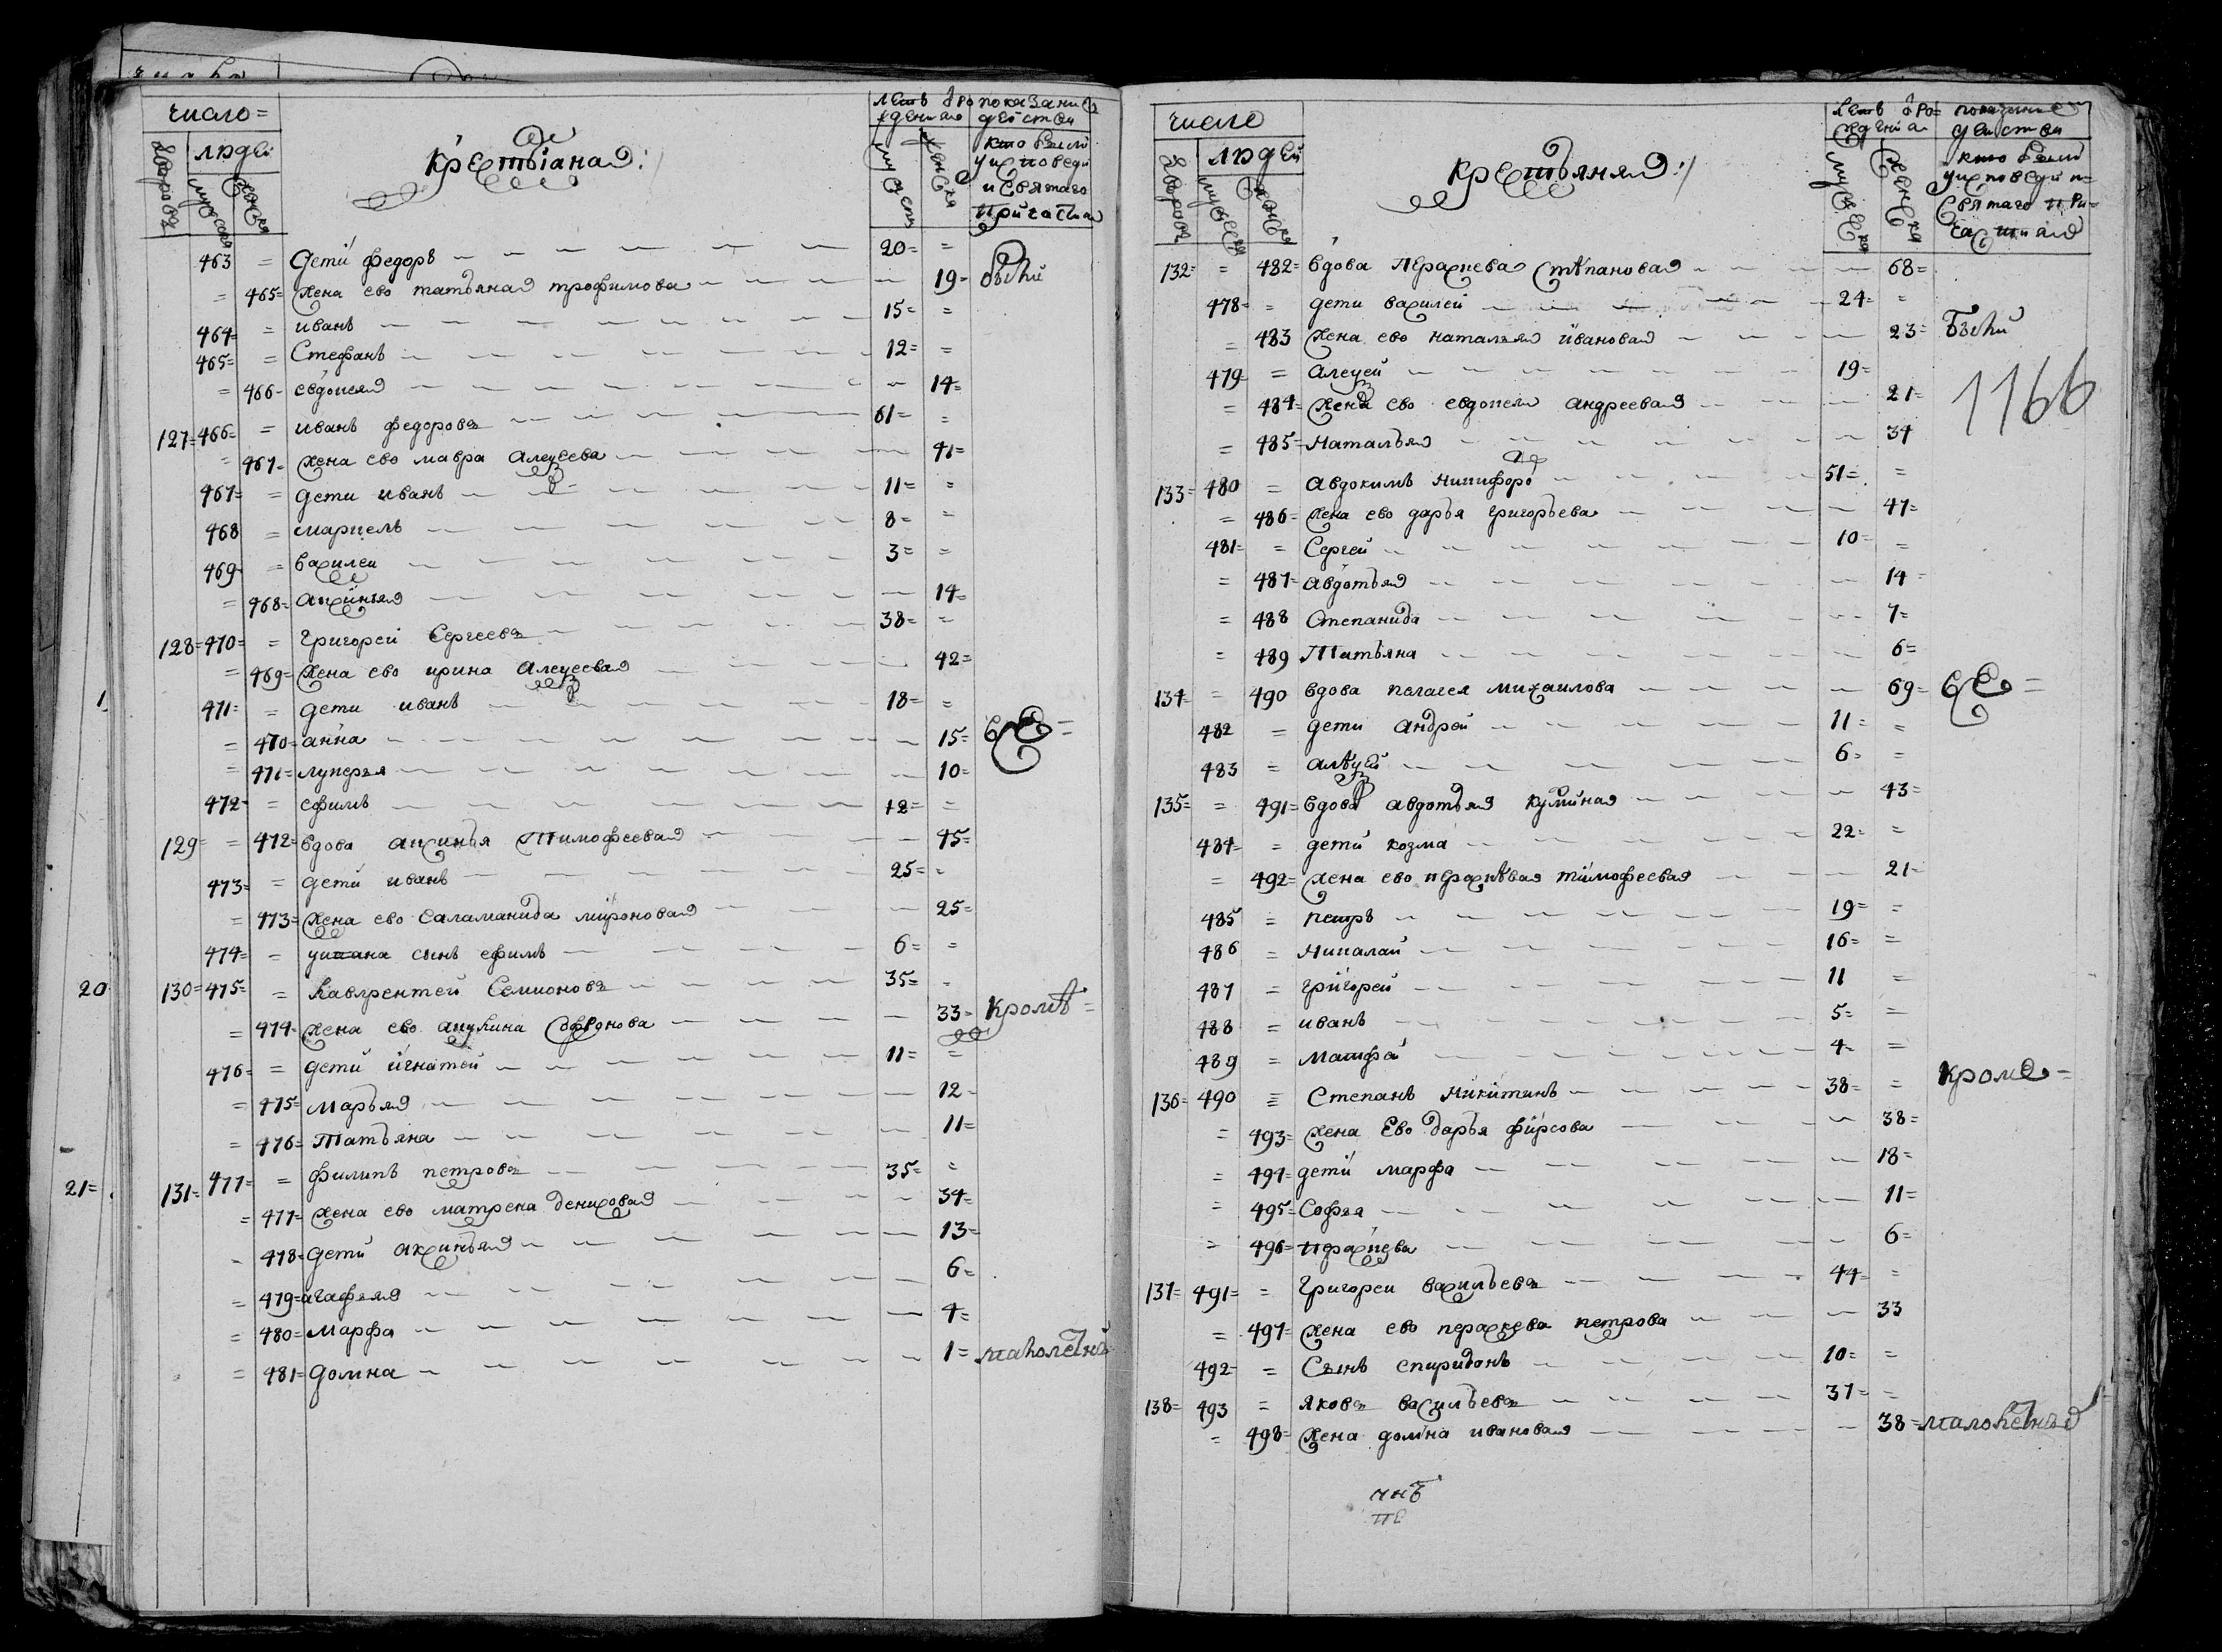 число
крестьяна
летъ от рождениа
показание действа
дворовъ
людей
мужеска
женска
мужеска
женска
кто были у исповеди и святаго причастиа
463 = дети федоръ 20 =
= 465 жена ево татьяна трофимова 19 были
464 = иванъ 15 =
465 = Стефанъ 12 =
= 466 евдокея 14
127 466 = иванъ федоровъ 61 =
= 467 жена ево мавра алексеева 41
467 = дети иванъ 11 =
468 = маркелъ 8 =
469 = василеи 3 =
= 468 аксинья 14
128 470 = григорей Сергеевъ 38 =
= 469 жена ево ирина алексеевая 42
1
471 = дети иванъ 18 =
= 470 анна 15 все
= 471 лукерья 10
472 = ефимъ 12 =
129 = 472 вдова аксинья Тимофеевая 45
473 = дети иванъ 25 =
= 473 жена ево саламанида мироновая 25
474 = у ивана сынъ ефимъ 6 =
20
130 475 = Лаврентей Семионовъ 35 =
= 474 жена ево акулина 33 кромѣ
476 = дети игнатей 11 =
= 475 марья 12
= 476 Татьяна 11
21
131 477 = филипъ петровъ 35 =
= 477 жена ево матрена денисовая 34
= 478 дети аксинья 13
= 479 агафья 6
= 480 марфа 4
= 481 домна 1 малолетныхъ
число
крестьяня
летъ от рождениа
показание действа
дворовъ
людей
мужеска
женска
мужеска
женска
кто были у исповеди и святаго причастия
132 = 482 вдова Параскева стѣпановая 68
478 = дети василей 24 =
= 483 жена ево наталья ивановая 23 Были
479 = алексей 19
1166
= 484 жена ево евдокея андреевая 21
= 485 Наталья 34
133 480 = авдокимъ никифоро 51 =
= 486 жена ево дарья григорьева 47
481 = Сергей 10 =
= 487 авдотья 14
= 488 Степанида 7
= 489 Татьяна 6
134 = 490 вдова пелагея михаилова 69 все
482 = дети андрей 11 =
483 = алѣксей 6 =
135 = 491 вдова авдотья кузминая 43
484 = дети козма 22 =
= 492 жена ево параскѣвая тимофеевая 21
485 = петръ 19 =
486 = Никалаи 16 =
487 = григорей 11 =
488 = иванъ 5 =
489 = Матфей 4 =
136 490 = Степанъ Никитинъ 38 = кроме
= 493 жена Ево дарья фирсова 38
= 494 дети марфа 18
= 495 Софья 11
= 496 параскева 6
137 491 = Григореи васильевъ 44 =
= 497 жена ево параскева петрова 33
492 = Сынъ спиридонъ 10 =
138 493 = яковъ васильевъ 37 =
= 498 жена домна ивановая 38 малолетныхъ